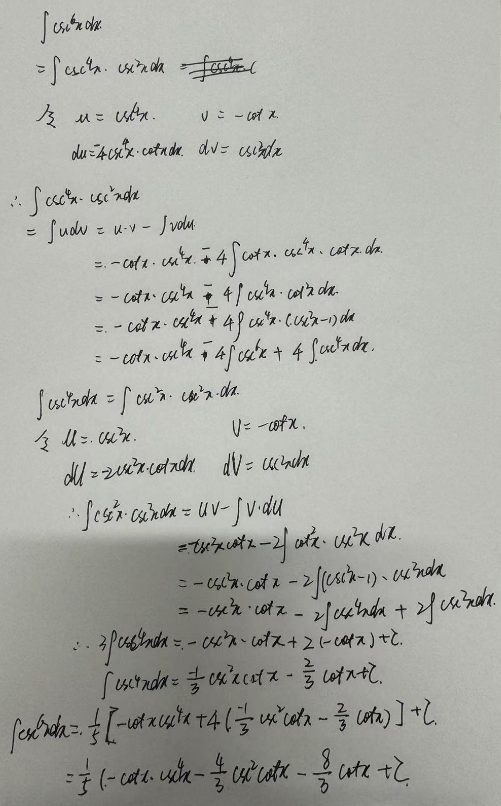 ∫csc⁶x dx
= ∫csc⁴x · csc²x dx
令 u = csc⁴x. v = -cot x.
du = -4csc⁴x · cotx dx dv = csc²x dx
∴ ∫csc⁴x · csc²x dx
= ∫u dv = u·v - ∫v du
= -cotx · csc⁴x - 4∫cotx · csc⁴x · cotx dx
= -cotx · csc⁴x - 4∫csc⁴x · cot²x dx.
= -cotx · csc⁴x - 4∫csc⁴x · (csc²x-1) dx
= -cotx · csc⁴x - 4∫csc⁶x + 4∫csc⁴x dx.
∫csc⁴x dx = ∫csc²x · csc²x · dx.
令 u = csc²x. v = -cotx.
du = 2csc²x·cotx dx dv = csc²x dx
∴ ∫csc²x · csc²x dx = uv - ∫v·du
= -csc²x cotx - 2∫cot²x · csc²x dx.
= -csc²x · cotx - 2∫(csc²x-1) · csc²x dx
= -csc²x · cotx - 2∫csc⁴x dx + 2∫csc²x dx.
∴ 3∫csc⁴x dx = -csc²x · cotx + 2(-cotx) + C.
∫csc⁴x dx = -1/3 csc²x cotx - 2/3 cotx + C.
∫csc⁶x dx = 1/5 [-cotx csc⁴x + 4(-1/3 csc² cotx - 2/3 cotx)] + C.
= 1/5 (-cotx · csc⁴x - 4/3 csc² cotx - 8/3 cotx + C.